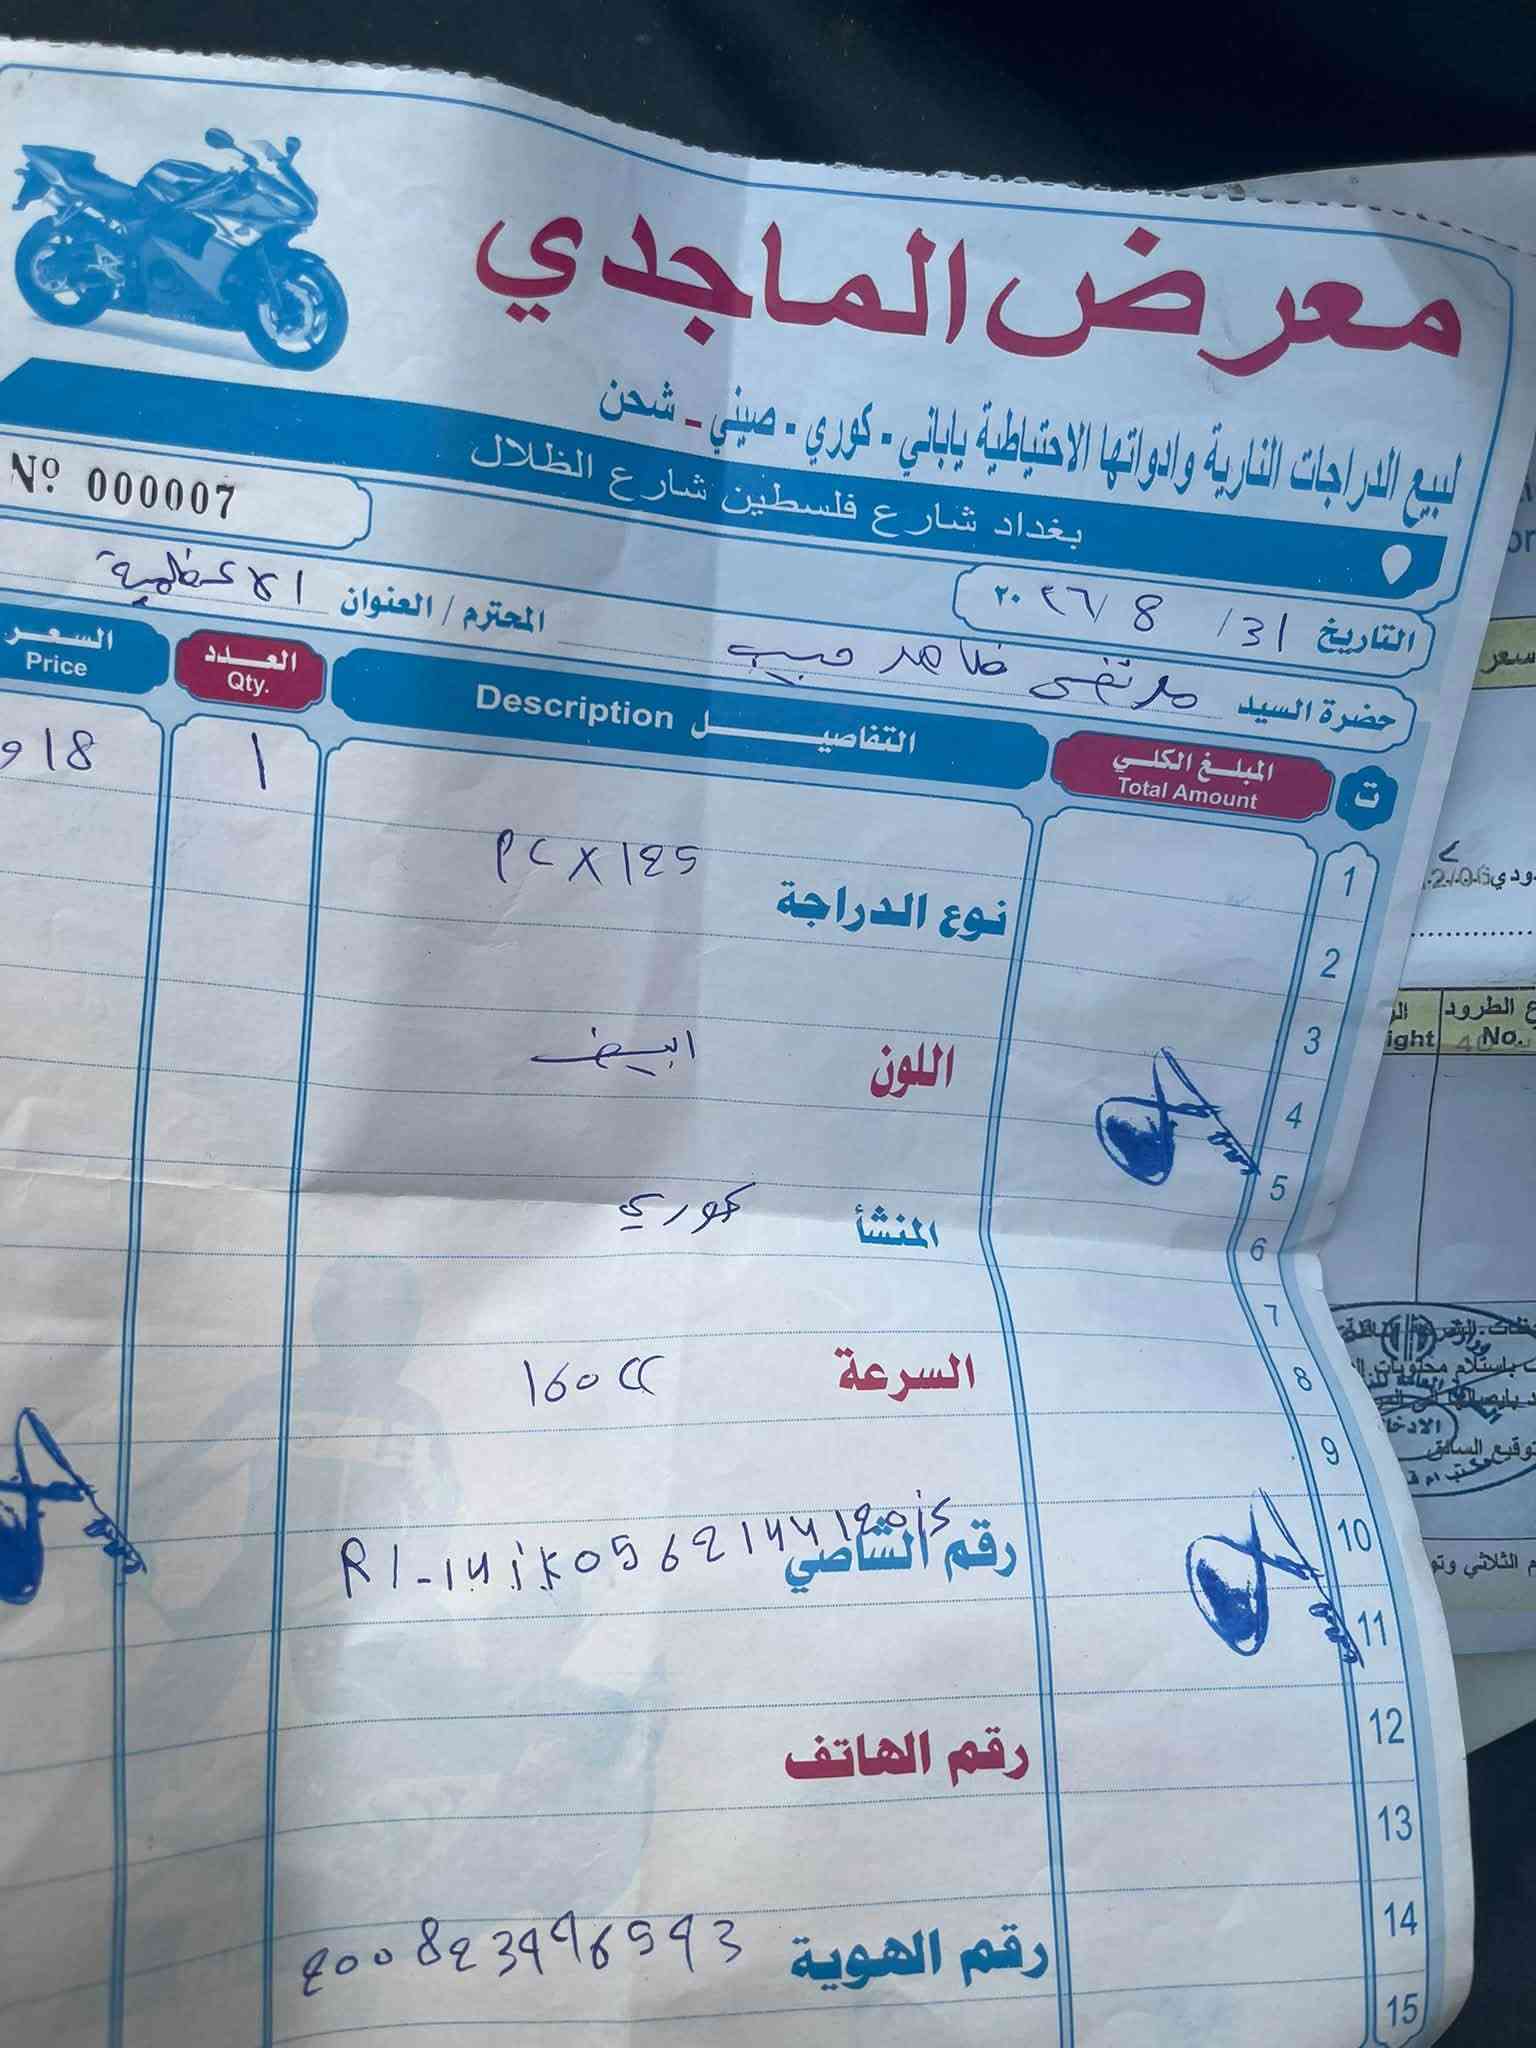 معرض الماجدي
لبيع الدراجات النارية وادواتها الاحتياطية ياباني - كوري - صيني - شحن
بغداد شارع فلسطين شارع الظلال
Nº 000007
التاريخ 31 / 8 / ٢٠٢٦
حضرة السيد مرتضى طاهر حبيب المحترم / العنوان الاعظمية
ت المبلغ الكلي التفاصيل Description العدد السعر
Total Amount Qty. Price
1 18
1
PCX 125
نوع الدراجة
2
3
اللون ابيض
4
5
المنشأ كوري
6
7
السرعة 160 CC
8
9
10
رقم الشاصي
11
12
رقم الهاتف
13
14
رقم الهوية 200823996593
15
سعر
ع الطرود
No.
ight
توقيع السائق